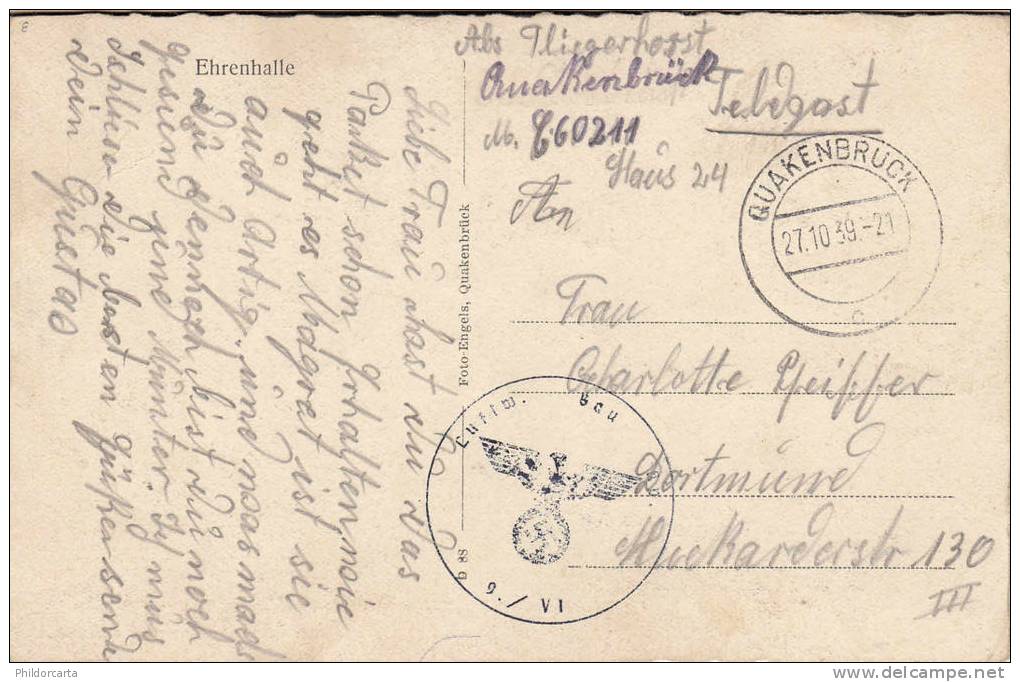 Ehrenhalle
Abs Fliegerhorst
Quakenbrück
M. L 60211
Haus 24
Feldpost
An
QUAKENBRÜCK
27.10 39.-21
c
Frau
Charlotte Pfeiffer
Dortmund
Huckarderstr 130
III
Luftw. Bau
IV / 6.
Foto-Engels, Quakenbrück
9 88
Liebe Frau hast du das
Paket schon erhalten wie
geht es Magret ist sie
auch Artig. und was mach
Du Denn noch bist du noch
gesund und Munter. Ich mus
Schlisen die besten grüße send
Dein Gustav
Phildorcarta
www.delcampe.net